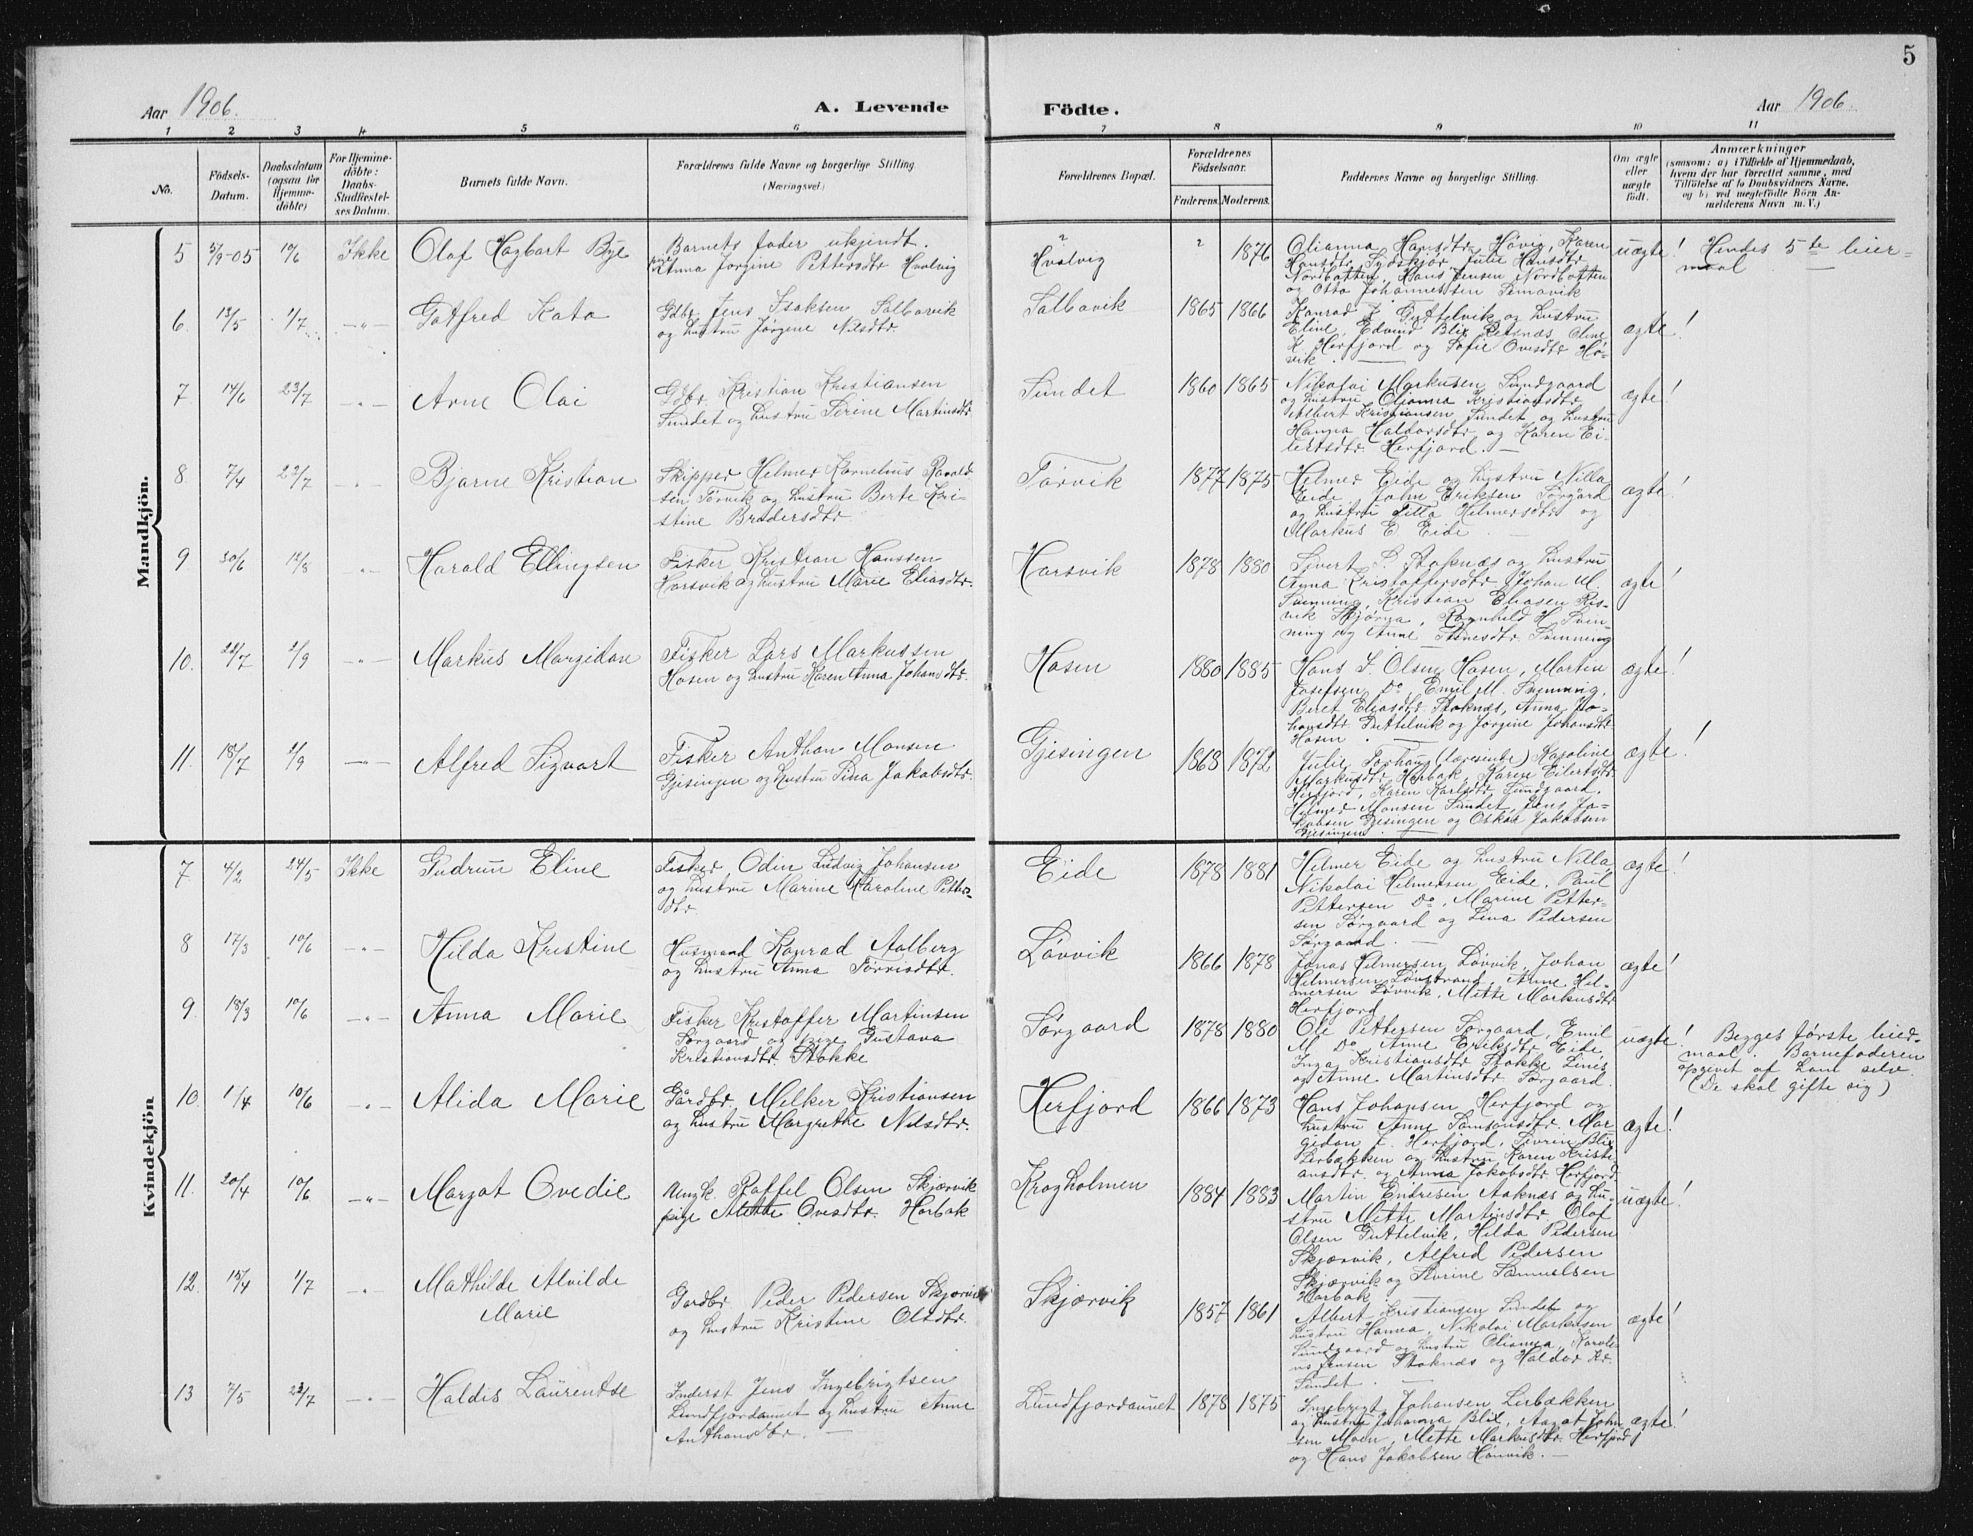 5
Aar 1906. A. Levende Födte. Aar 1906.
1 2 3 4 5 6 7 8 9 10 11
No.
Födsels-
Datum.
Daabsdatum
(ogsaa for
Hjemme-
döbte)
For Hjemme-
döbte:
Daabs-
Stadfæstel-
ses Datum.
Barnets fulde Navn.
Forældrenes fulde Navne og borgerlige Stilling.
(Næringsvei)
Forældrenes Bopæl.
Forældrenes
Födselsaar.
Faderens. Moderens.
Faddernes Navne og borgerlige Stilling.
Om ægte
eller
uægte
födt.
Anmærkninger
(saasom: a) i Tilfælde af Hjemmedaab,
hvem der har forrettet samme, med
Tilföielse af to Daabsvidners Navne,
og b) ved uægtefödte Börn An-
melderens Navn m. V.)
Mandkjön.
5 5/9-05 10/6 Ikke Olaf Hagbart Bye
Barnets fader ukjendt.
Anna Jorgine Pettersdtr Hvalvig
Hvalvig 1876
Olianna Hansdtr Høvig, Karen
Hansdtr Sydskjør, Julie Hansdtr
Nordbotten, Hans Jensen Nordbotten
og Otto Johannessen
uægte! Hendes 5te leier-
maal
6. 13/5 1/7 -"- Gotfred Kato
Gdbr Jens Isaksen Salbovik
og hustru Jørgene Nilsdtr
Salbovik 1865 1866
Konrad J. Guttelvik og hustru
Eline, Edvind Blix Refsnæs, Oline
K. Herfjord og Sofie Ovesdtr Hø-
vik.
ægte!
7 14/6 23/7 -"- Arne Olai
Gdbr Kristian Kristiansen
Sundet og hustru Serine Martinsdtr
Sundet 1860 1865
Nikolai Markusen Sundgaard
og hustru Olianna Kristiansdtr
Albert Kristiansen Sundet og hustru
Hanna Haldorsdtr og Karen Ei-
lertsdtr Herfjord.
ægte!
8 7/4 22/7 -"- Bjarne Kristian
Skipper Helmer Kornelius Ravald
sen Tørvik og hustru Berte Kri-
stine Brodersdtr
Tørvik 1877 1875
Helmer Eide og hustru Nilla
Eide, John Eriksen Sørgard
og hustru Helmersdtr og
Markus E Eide
ægte!
9 30/6 12/8 -"- Harald Ellingsen
Fisker Kristian Hanssen
Harsvik og hustru Marie Eliasdtr.
Harsvik 1878 1880
Sivert P. Stoknæs og hustru
Anna Kristoffersdtr Johan M.
Svenning, Kristian Eliasen Ris-
vik Skjørya, Ragnhild H. Sven-
ning og Anne Svenning
ægte!
10. 22/7 2/9 -"- Markus Margidan
Fisker Lars Markussen
Hosen og hustru Karen Anna Johansdtr.
Hosen 1880 1885
Hans L. Olsen Hosen, Martin
Josefsen Do, Emil M. Svenning,
Beret Eliasdtr Stoknæs, Anna Jo-
hansdtr Guttelvik og Jorgine Johansdtr
Hosen
ægte!
11. 18/7 2/9 -"- Alfred Sigvart
Fisker Anthon Monsen
Gjesingen og hustru Sina Jakobsdtr.
Gjesingen 1868 1872
Julie Torhaug (lærerinde) Karoline
Markusdtr Harbak, Karen Eilertsdtr
Herfjord, Karen Karlsdtr Sundgaard,
Helmer Monsen Sundet, Jens Ja-
kobsen Gjesingen og Oskar Jakobsen
Gjesingen.
ægte!
Kvindekjön
7. 4/2 24/5 Ikke Gudrun Eline
Fisker Odin Ludvig Johansen
og hustru Marine Karoline Petter-
dtr
Eide 1878 1881
Helmer Eide og hustru Nilla,
Nikolai Helmersen Eide, Paul
Pettersen Do, Marine Petter-
sen Sørgaard og Lina Pedersen
Sørgaard.
ægte!
8 17/3 10/6 -"- Hilda Kristine
Husmand Konrad Aalberg
og hustru Anna Tørrisdtr.
Løvvik 1866 1878
Jonas Helmersen Løvvik, Johan
Helmersen Løvstrand, Anne Hel-
mersen Løvvik, Mette Markusdtr
Herfjord
ægte!
9. 18/3 10/6 -"- Anna Marie
Fisker Kristoffer Martinsen
Sørgaard og pige Gustava
Kristiansdtr Stokke
Sørgaard 1878 1880
Ole Pettersen Sørgaard, Emil
M. Do, Anne Eriksdtr Eide,
Inga Kristiansdtr Stokke Lines
og Anne Martinsdtr Sørgaard.
uægte! Begges første leier-
maal. Barnefaderen
opgivet af ham selv.
(De skal gifte sig)
10. 1/4 10/6 -"- Alida Marie
Gårdbr Melker Kristiansen
og hustru Margrethe Nilsdtr.
Herfjord 1866 1873
Hans Johansen Herfjord og
hustru Anne Samsonsdtr. Mar
gidan J. Herfjord, Severin Blix
Lerbækken og hustru Karen Kristi-
ansdtr og Anna Jakobsdtr Herfjord
ægte!
11. 20/4 10/6 -"- Margot Ovedie
Ungk. Raffel Olsen Skjærvik
pige Alette Ovesdtr. Harbak
Kragholmen 1884 1883
Martin Endresen Aaknæs og hu-
stru Mette Martinsdtr Olaf
Olsen Guttelvik, Hilda Pedersen
Skjærvik, Alfred Pedersen
Skjærvik og Sivrine Samuelsen
Harbak
uægte!
12. 15/4 1/7 -"- Mathilde Alvilde
Marie
Gardbr Peder Pedersen Skjærvik
og hustru Kristine Olsdtr.
Skjærvik 1857 1861
Albert Kristiansen Sundet og
hustru Hanna, Nikolai Markusen
Sundgaard og hustru Olianna, Karoli-
us Jensen Stoknæs og Haldor Kr.
Sundet.
ægte!
13 7/5 23/7 -"- Haldis Laurentse
Inderst Jens Ingebrigtsen
Lundfjordaunet og hustru Anne
Anthonsdtr.
Lundfjordaunet 1878 1875
Ingebrigt Johansen Lerbækken
og hustru Johanna Blix, Aagot John
sen Moen, Mette Markusdtr Herfjord
og Hans Jakobsen Hønvik.
ægte!